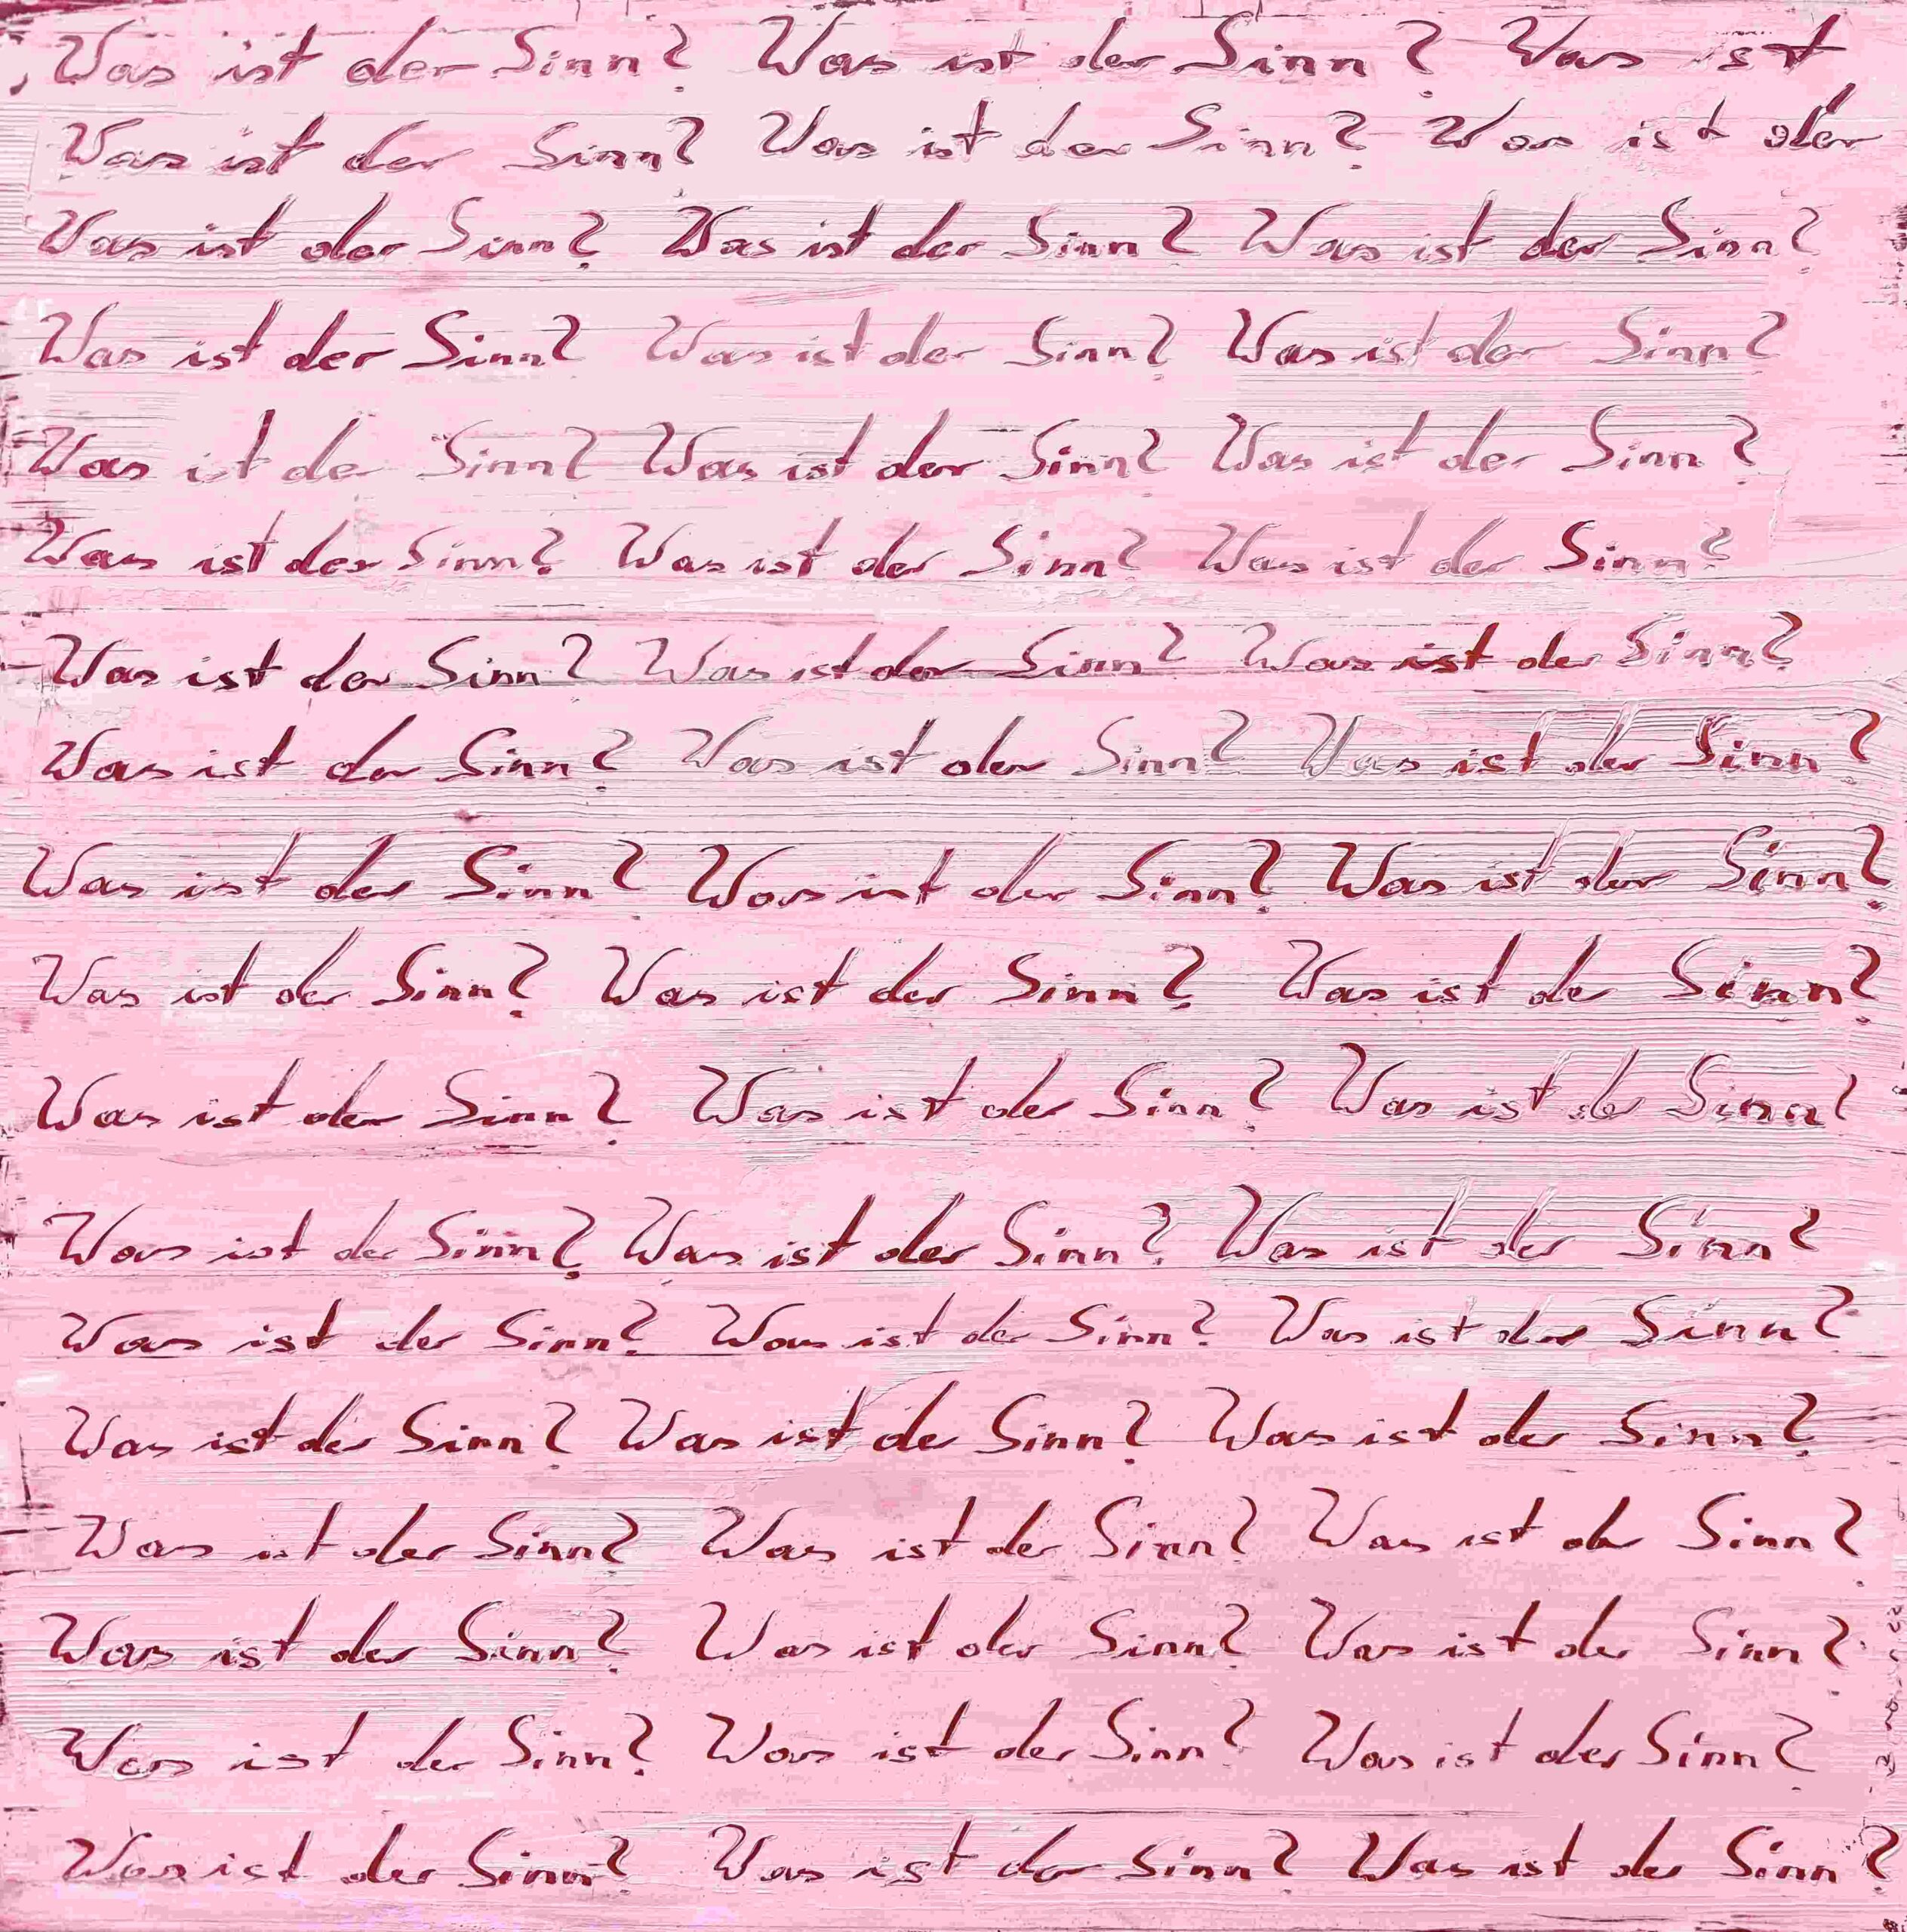 Was ist der Sinn? Was ist der Sinn? Was ist
Was ist der Sinn? Was ist der Sinn? Was ist der
Was ist der Sinn? Was ist der Sinn? Was ist der Sinn?
Was ist der Sinn? Was ist der Sinn? Was ist der Sinn?
Was ist der Sinn? Was ist der Sinn? Was ist der Sinn?
Was ist der Sinn? Was ist der Sinn? Was ist der Sinn?
Was ist der Sinn? Was ist der Sinn? Was ist der Sinn?
Was ist der Sinn? Was ist der Sinn? Was ist der Sinn?
Was ist der Sinn? Was ist der Sinn? Was ist der Sinn?
Was ist der Sinn? Was ist der Sinn? Was ist der Sinn?
Was ist der Sinn? Was ist der Sinn? Was ist der Sinn?
Was ist der Sinn? Was ist der Sinn? Was ist der Sinn?
Was ist der Sinn? Was ist der Sinn? Was ist der Sinn?
Was ist der Sinn? Was ist der Sinn? Was ist der Sinn?
Was ist der Sinn? Was ist der Sinn? Was ist der Sinn?
Was ist der Sinn? Was ist der Sinn? Was ist der Sinn?
Was ist der Sinn? Was ist der Sinn? Was ist der Sinn?
Was ist der Sinn? Was ist der Sinn? Was ist der Sinn?